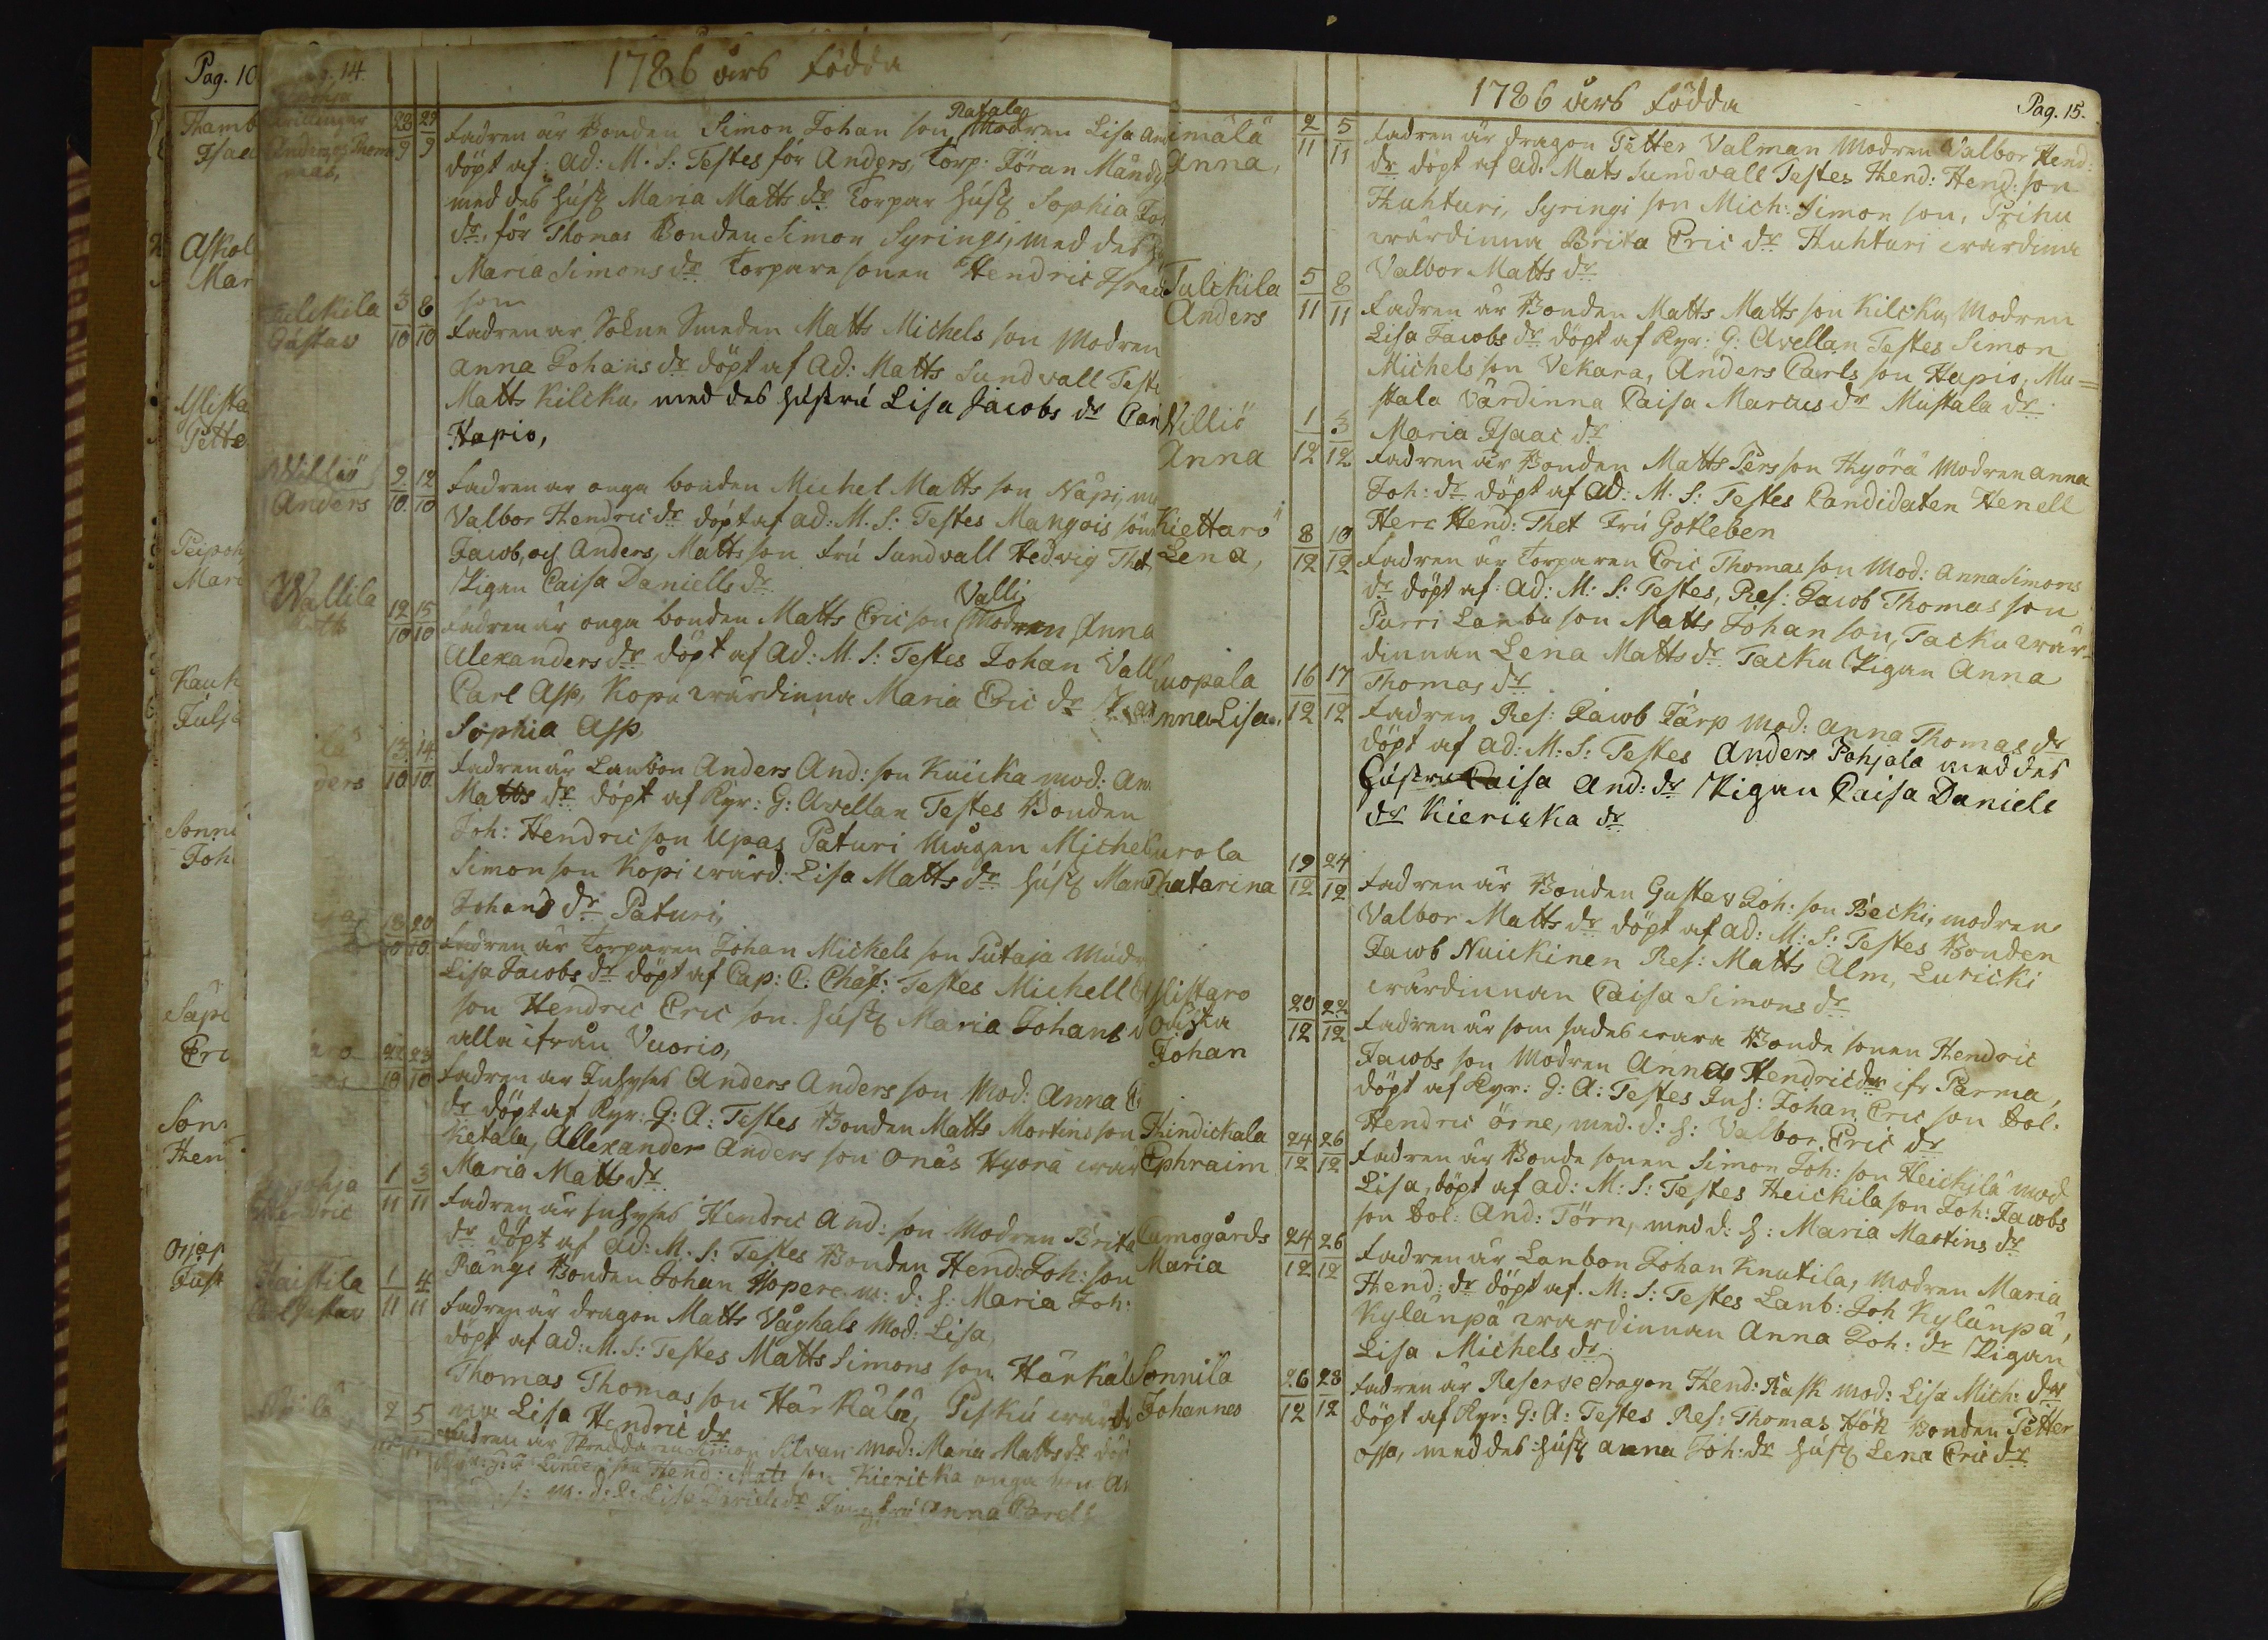 Pag. 10
14.
1786 års födda
Thamb
Isac
Askol
Mar
Mista
Pette
Peipoh
Mari
Kauk
Julja
Sonni
Joh
Säpi
Eric
Sonn
Hen
Orjap
Just
Anders Thom
mas,
28/9 29/9
Fadren är Bonden Simon Johan son Ratala Modren Lisa And
döpt af: Ad: M. S: Testes för Anders, Torp: Jöran Månds
med des hust Maria Matts dr Torpar hust Sophia Joh
dr, för Thomas Bonden Simon Syringi, med des
Maria Simons dr Torpare sonen Hendric Isra
son
Tulckila 3/10 8/10
Gustav
Fadren är Sokne Smeden Matts Michels son Modren
Anna Johans dr döpt af Ad: Matts Sundvall Teste
Matts Kilcku, med des hustru Lisa Jacobs dr Car
Hapio,
Williö 9/10 12/10
Anders
Fadren är unga bonden Michel Matts son Näpi, mo
Valbor Hendric dr döpt af Ad: M. S: Testes Mangois son
Jacob, och Anders, Matts son Fru Sundvall Hedvig Thet
Pigan Caisa Daniells dr
Wallila 12/10 15/10
Matts
Fadren är unga bonden Matts Eric son Valli Modren Anna
Alexanders dr döpt af Ad: M. S: Testes Johan Vall
Carl Asp, Kopu wärdinna Maria Eric dr
Sophia Asp,
13/10 14/10
ders
Fadren är Lanbon Anders And: son Kuicka mod: An
Matts dr döpt af Kyr: G: Avellan Testes Bonden
Joh: Hendric son Upas Paturi mågen Michel
Simon son Köpi wärd: Lisa Matts dr hust Mari
Johans dr Paturi,
18/10 20/10
Fadren är Torparen Johan Michels son Putaja Modr
Lisa Jacobs dr döpt af Cap: C. Chæf: Testes Michell
son Hendric Eric son hust Maria Johans d
alla ifrån Vuorio,
22/10 23/10
Fadren är Inhyses Anders Anders son Mod: Anna
dr döpt af Kyr: G: A: Testes Bonden Matts Mortens son
Ketala, Allexander Anders son Onäs Hyörä wär
Maria Matts dr
1/11 3/11
Hendric
Fadren är inhyses Hendric And: son Modren Brita
dr döpt af Ad: M. S: Testes Bonden Hend: Joh: son
Rängi Bonden Johan Hopere m: d: h: Maria Joh:
Haistila 1/11 4/11
Gustav
Fadren är dragon Matts Våghals Mod: Lisa
döpt af Ad: M. S: Testes Matts Simons son Härkäl
Thomas Thomas son Härkälä, Piskú wärd
na Lisa Hendric dr
2 5
Fadren är Skreddaren Simon Silvan: Mod: Maria Matts dr döp
son Hend: Mats son Kiericka unga
m. d: h: Lisa dr Jungfru Anna Borell
1786 års födda
Pag. 15.
imälä 2/11 5/11
Anna,
Fadren är dragon Petter Valman Modren Valbor Hend:
dr döpt af Ad: Mats Sundvall Testes Hend: Hend: son
Huhturi, Syringi son Mich: Simon son, Prihu
wärdinna Brita Eric dr Huhturi wärdinna
Valbor Matts dr
Tulckila 5/11 8/11
Anders
Fadren är Bonden Matts Matts son Kilcku, Modren
Lisa Jacobs dr döpt af Kyr: G: Avellan Testes Simon
Michels son Vekara, Anders Carls son Hapio, Mu=
stala Värdinna Caisa Marcus dr Mustala dr
Maria Isaac dr
Villiö 1/12 3/12
Anna
Fadren är Bonden Matts Pers son Hyörä Modren Anna
Joh: dr döpt af Ad: M. S: Testes Candidaten Henell
Herr Hend: Thet Fru Gotleben
Kiettarö 8/12 10/12
Lena,
Fadren är Torparen Eric Thomas son Mod: Anna Simons
dr döpt af: Ad: M: S: Testes, Res: Jacob Thomas son
Purri Lanbu son Matts Johan son, Tacku wär=
dinnan Lena Matts dr Tacku Pigan Anna
Thomas dr
uopala 16/12 17/12
nna Lisa,
Fadren Res: Jacob Tärp mod: Anna Thomas dr
döpt af Ad: M: S: Testes Anders Pohjala med des
hustru Caisa And: dr Pigan Caisa Daniels
dr Kiericka dr
urola 19/12 24/12
Chatarina
Fadren är Bonden Gustav Joh: son Bécki, modren
Valbor Matts dr döpt af Ad: M: S: Testes Bonden
Jacob Nuickinen Res: Matts Alm, Luricki
wärdinnan Caisa Simons dr
listaro 20/12 22/12
Oäkta
Johan
Fadren är som sades wara Bonde sonen Hendric
Jacobs son Modren Anna Hendric dr ifr Parma,
döpt af Kyr: G: A: Testes Inh: Johan Eric son Sol:
Hendric Örne, med. d: h: Valbor Eric dr
Hindickala 24/12 26/12
Ephraim
Fadren är Bonde sonen Simon Joh: son Heickilä mod
Lisa, döpt af Ad: M: S: Testes Heickila son Joh: Jacobs
son Sol: And: Törn, med d: h: Maria Martins dr
Cumogårds 24/12 26/12
Maria
Fadren är Lanbon Johan Knutila, Modren Maria
Hend: dr döpt af. M: S: Testes Lanb: Joh Kylänpä,
Kylänpä wärdinnan Anna Joh: dr Pigan
Lisa Michels dr
Sonnila 26/12 28/12
Johannes
Fadren är Reserse dragon Hend: Rask mod: Lisa Mich: dr
döpt af Kyr: G: A: Testes Res: Thomas Hök Bonden Petter
Ossa, med des hust Anna Joh: dr hust Lena Eric dr